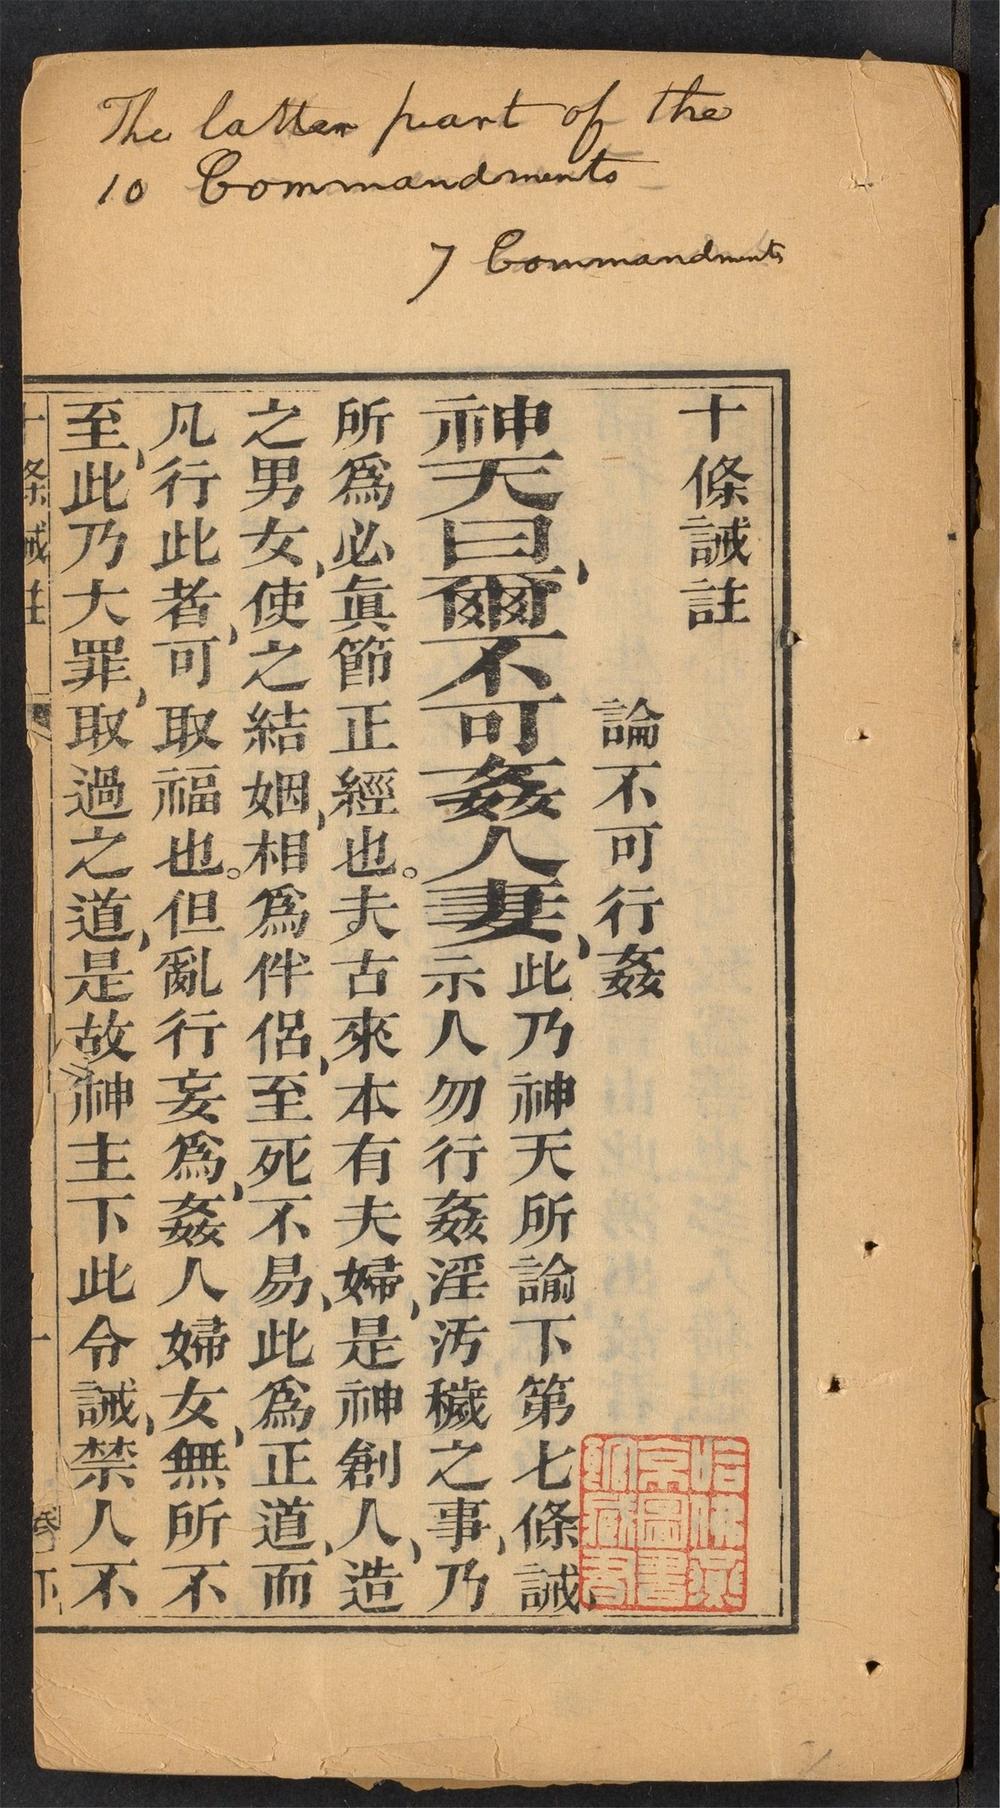 The latter part of the
10 Commandments
7 Commandments
十條誡註
論不可行姦
神天曰爾不可姦人妻、
此乃神天所諭下第七條誡、
示人勿行姦淫汚穢之事、乃
所爲必眞節正經也。夫古來本有夫婦、是神創人、造
之男女、使之結姻、相爲伴侶、至死不易、此爲正道、而
凡行此者、可取福也。但亂行妄爲、姦人婦女、無所不
至、此乃大罪、取過之道、是故神主下此令誡、禁人不
十條誡註
卷下
一
哈佛燕
京圖書
館藏書